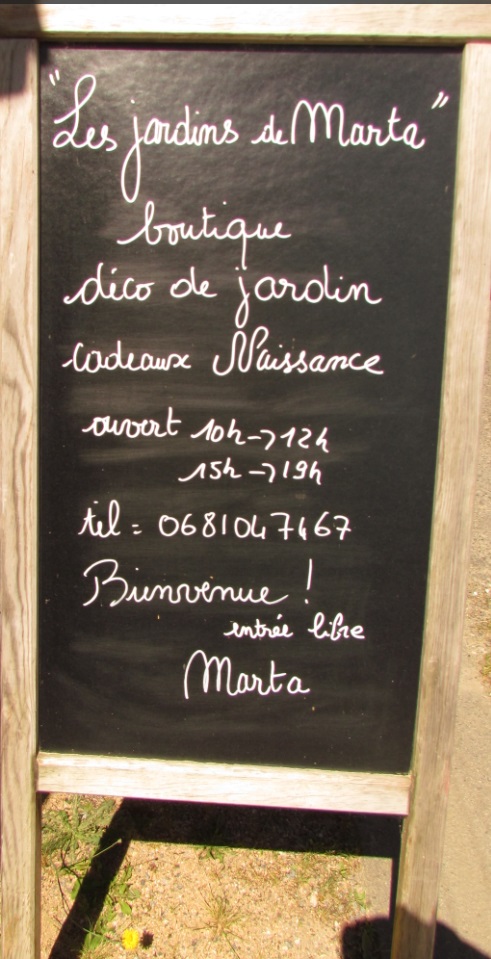 "Les jardins de Marta"
boutique
déco de jardin
cadeaux Naissance
ouvert 10h->12h
15h->19h
tel = 0681047467
Bienvenue !
entrée libre
Marta